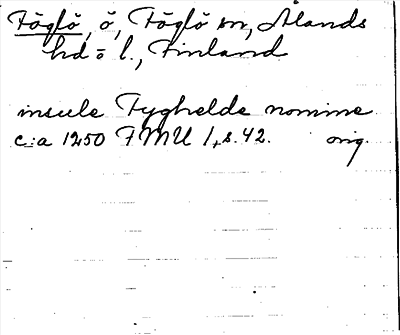 Föglö, ö, Föglö sn, Ålands
hd o l., Finland
insule Fyghelde nomine
c:a 1250 FMU 1, s. 42. orig.